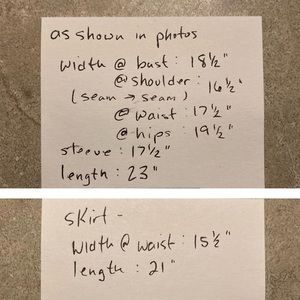 as shown in photos
width @ bust : 18½"
@ shoulder : 16½"
(seam → seam)
@ waist : 17½"
@ hips : 19½"
sleeve : 17½"
length : 23"
skirt -
width @ waist : 15½"
length : 21"